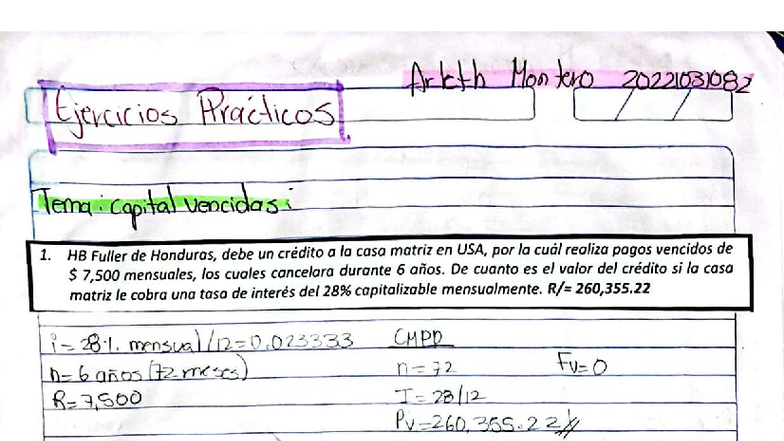 Arleth Montero 20221031082
Ejercicios Prácticos
Tema: Capital vencidas:
1. HB Fuller de Honduras, debe un crédito a la casa matriz en USA, por la cuál realiza pagos vencidos de
$ 7,500 mensuales, los cuales cancelara durante 6 años. De cuanto es el valor del crédito si la casa
matriz le cobra una tasa de interés del 28% capitalizable mensualmente. R/= 260,355.22
i = 28%. mensual/12=0.023333
n= 6 años (72 meses)
R= 7,500
CMPD
n=72
I= 28/12
Pv=260,355.22
Fv=0